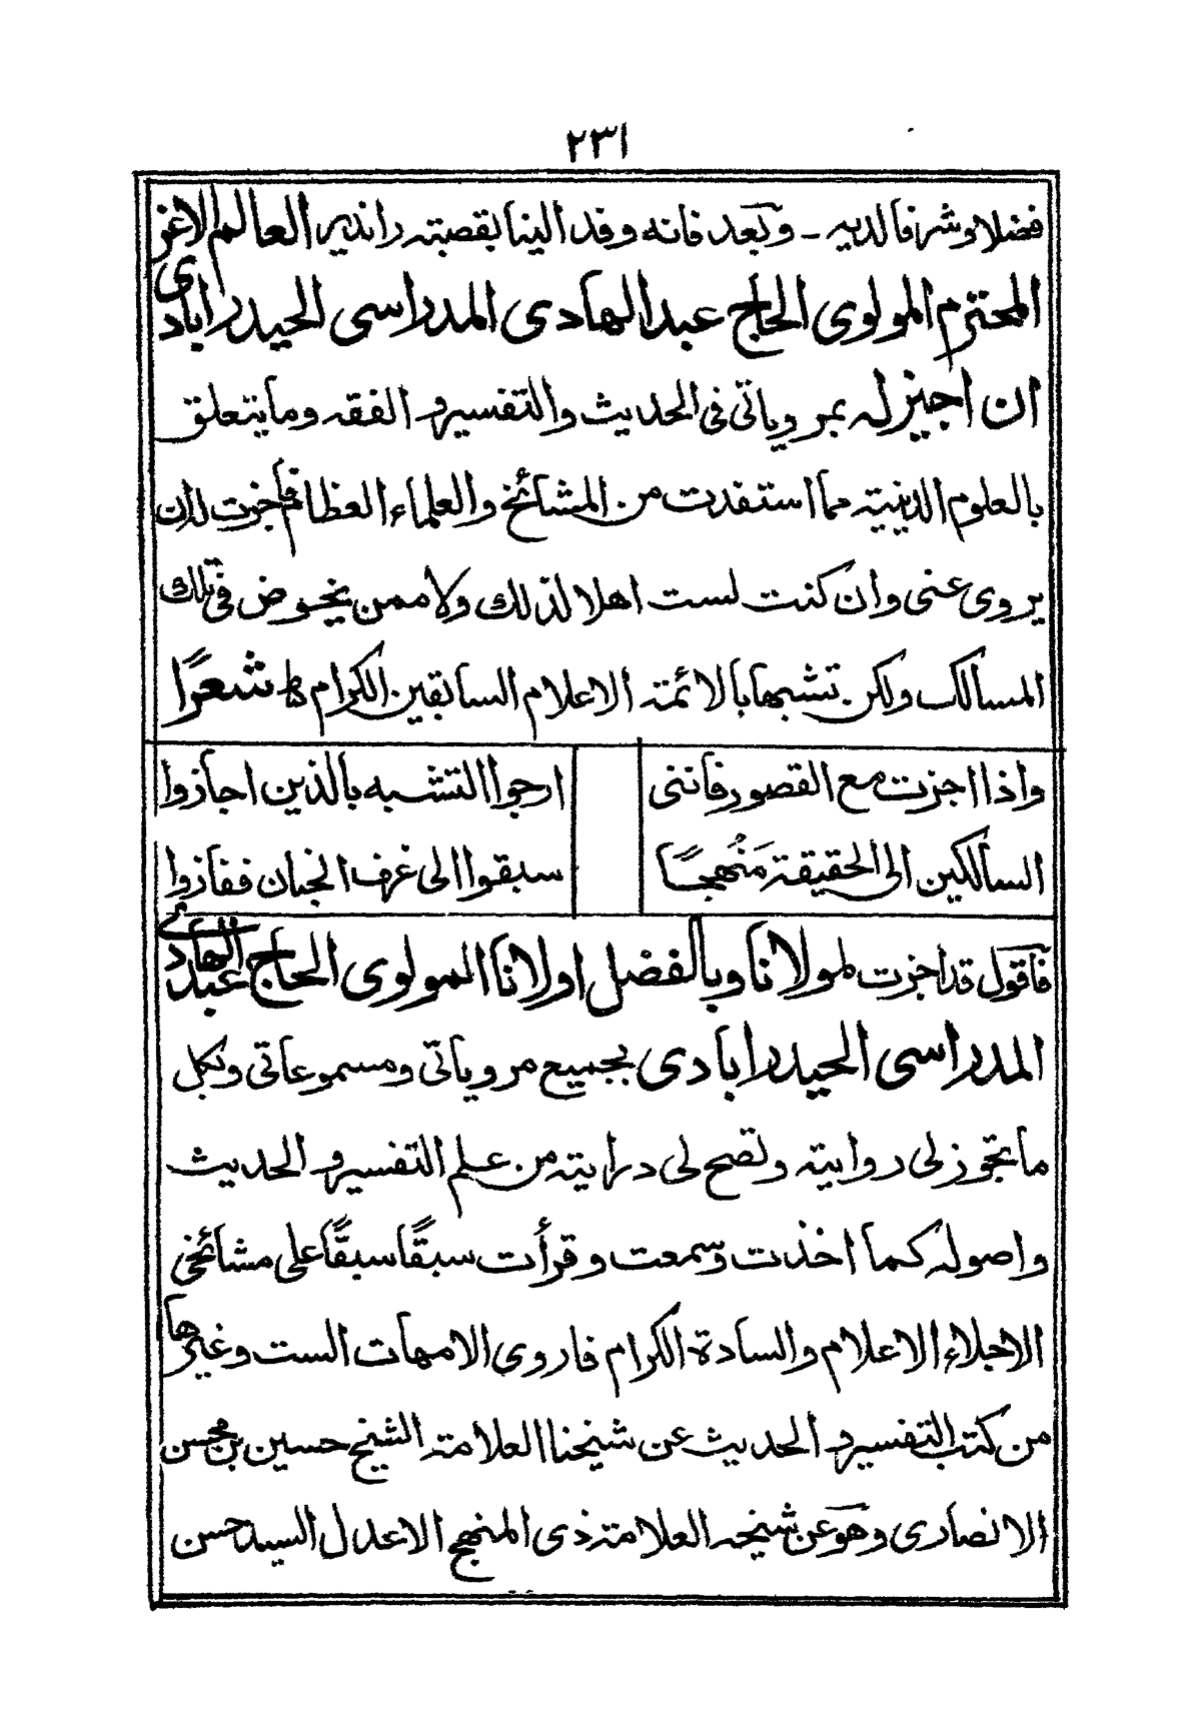 ٢٣١
فضلا وشرفا لديه ـ وبعد فانه وفد الينا بقصبته راندير العالم الاغر
المحترم المولوى الحاج عبدالهادى المدراسى الحيدرابادى
ان اجيز له بمروياتى فى الحديث والتفسير و الفقه وما يتعلق
بالعلوم الدينيته مما استفدت من المشائخ والعلماء العظام فاجزت له ان
يروى عنى وان كنت لست اهلا لذلك ولا ممن يخوض فى تلك
المسالك ولكن تشبها بالائمته الاعلام السابقين الكرام ط شعرًا
واذا اجزت مع القصور فاننى ارجوا التشبه بالذين اجازوا
السالكين الى الحقيقته مَنْهجًا سبقوا الى غرف الجنان ففازوا
فاقول قد اجزت لمولانا وبالفضل اولانا المولوى الحاج عبد الهادى
المدراسى الحيدرابادى بجميع مروياتى ومسموعاتى وبكل
ما تجوز لى روايته وتصح لى درايته من علم التفسير و الحديث
واصوله كما اخذت وسمعت وقرأت سبقًا سبقًا على مشائخى
الاجلاء الاعلام والسادة الكرام فاروى الامهات الست وغيرها
من كتب التفسير و الحديث عن شيخنا العلامته الشيخ حسين بن محسن
الانصارى وهو عن شيخه العلامته ذى المنهج الاعدل السيد حسن